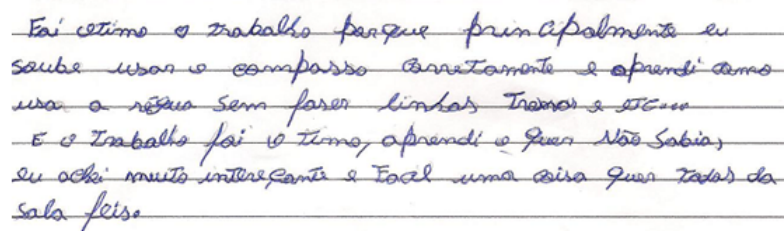 Foi otimo o trabalho porque principalmente eu
soube usar o compasso corretamente e aprendi como
usa a régua sem faser linhas Tremos e etc...
E o Trabalho foi o timo, aprendi o quer Não Sabia,
eu achei muito intereçante e Facil uma coisa quer todos da
sala feis.